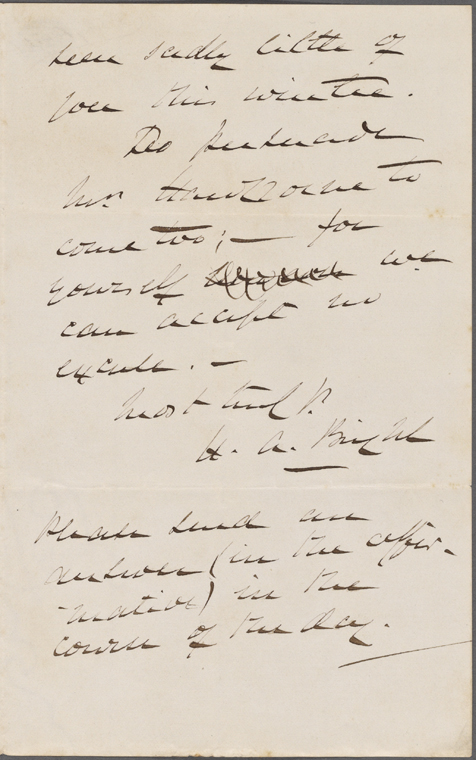 seen sadly little of
you this winter.
Do persuade
Mr. Hawthorne to
come too; — for
yourself we
can accept no
excuse. —
Most truly Yr.
H. A. Bright
Please send an
answer (in the affir-
-mative) in the
course of the day.